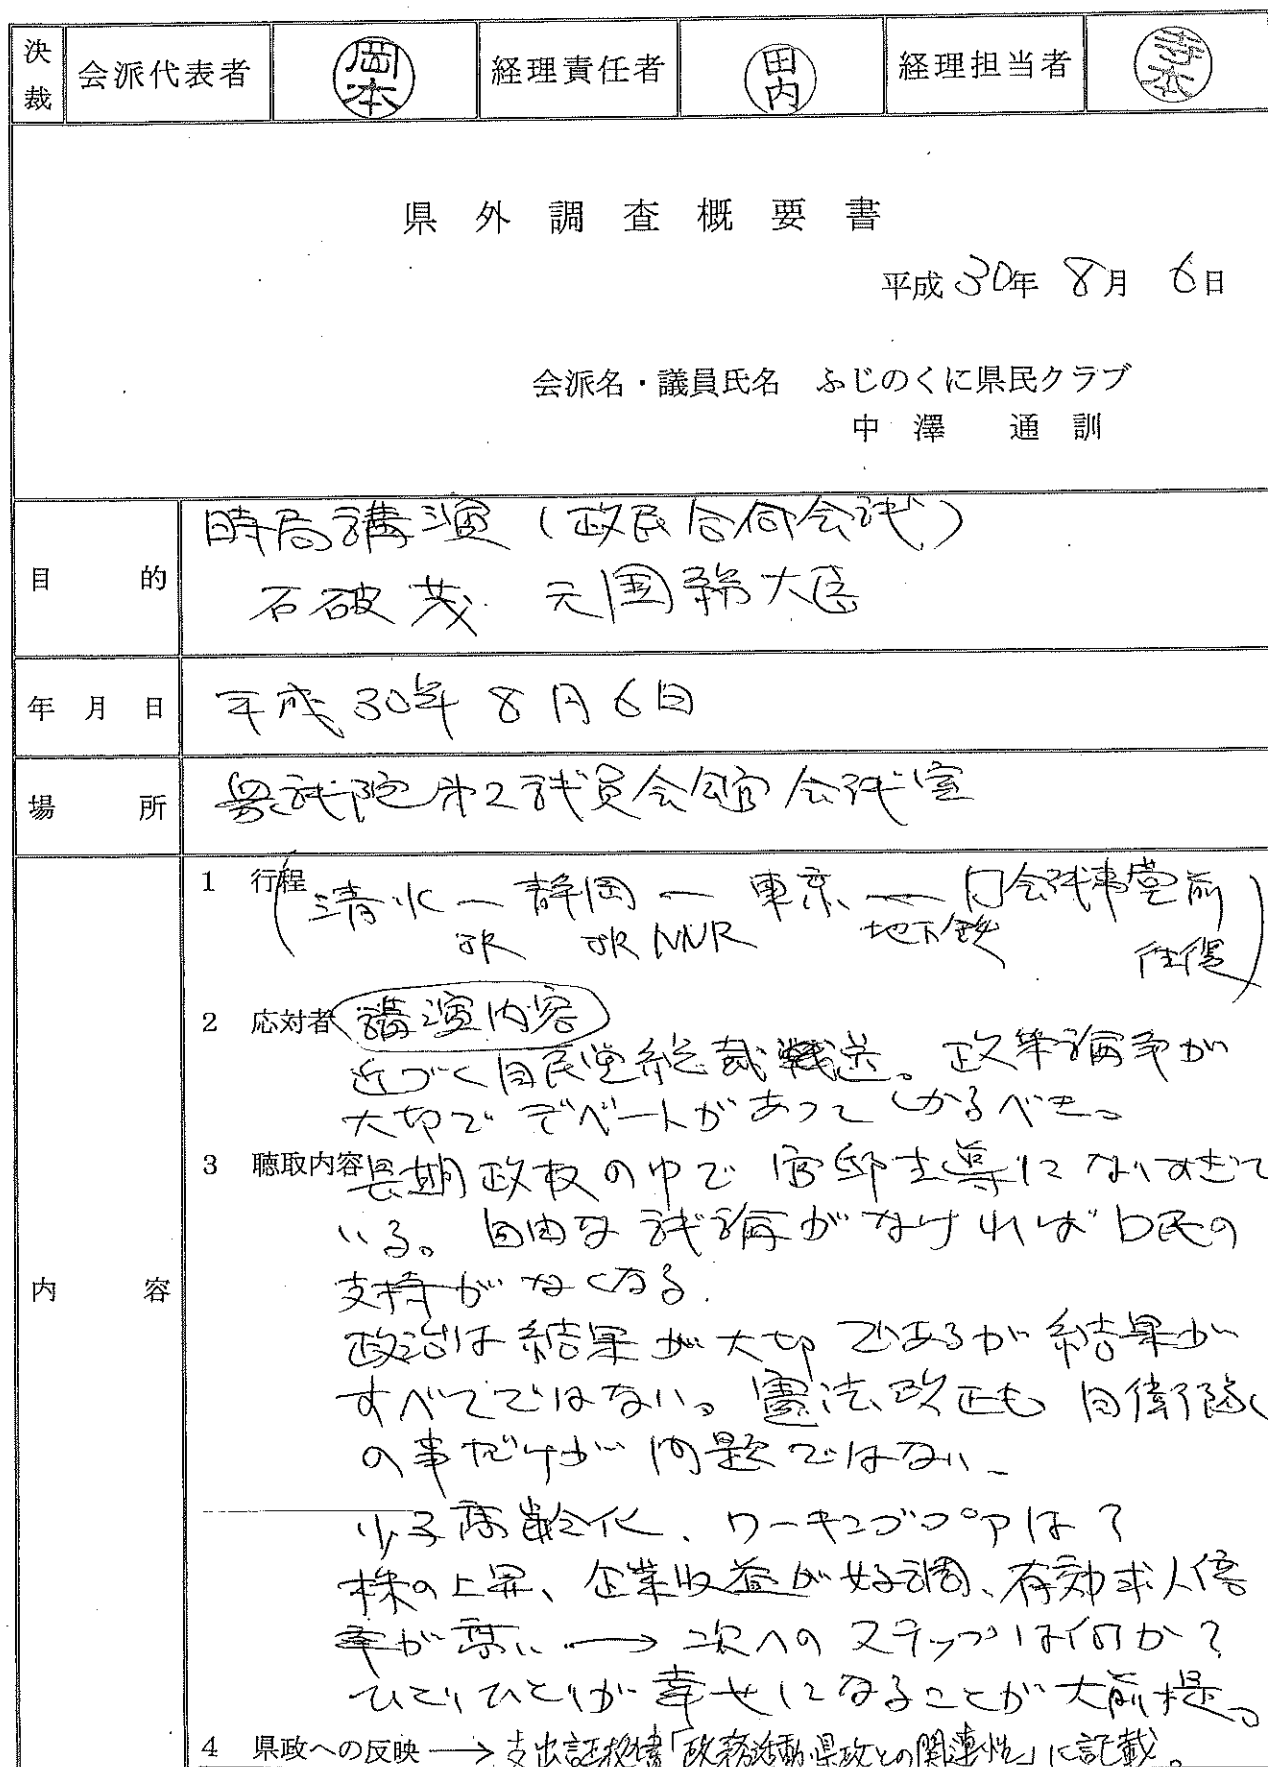 決裁 会派代表者 岡本 経理責任者 田内 経理担当者
県外調査概要書
平成30年 8月 6日
会派名・議員氏名 ふじのくに県民クラブ
中澤 通訓
目的
時局講演(政民合同会議)
石破茂 元国務大臣
年月日
平成30年 8月6日
場所
衆議院第2議員会館会議室
内容
1 行程
(清水 ― 静岡 ― 東京 ― 国会議事堂前
JR JR 地下鉄 往復)
2 応対者 講演内容
近づく自民党総裁選。政策論争が
大切で デベートがあってしかるべき。
3 聴取内容
長期政权の中で 官邸主導になりすぎて
いる。自由な議論がなければ口民の
支持がなくなる.
政治は結果が大切であるが結果が
すべてではない。憲法改正も自衛隊
の事だけが問題ではない
少子高齢化、ワーキングプアは?
株の上昇、企業収益が好調、有効求人倍
率が高い → 次へのステップは何か?
ひとりひとりが幸せになることが大前提。
4 県政への反映 → 支出証拠書「政務活動・県政との関連性」に記載。